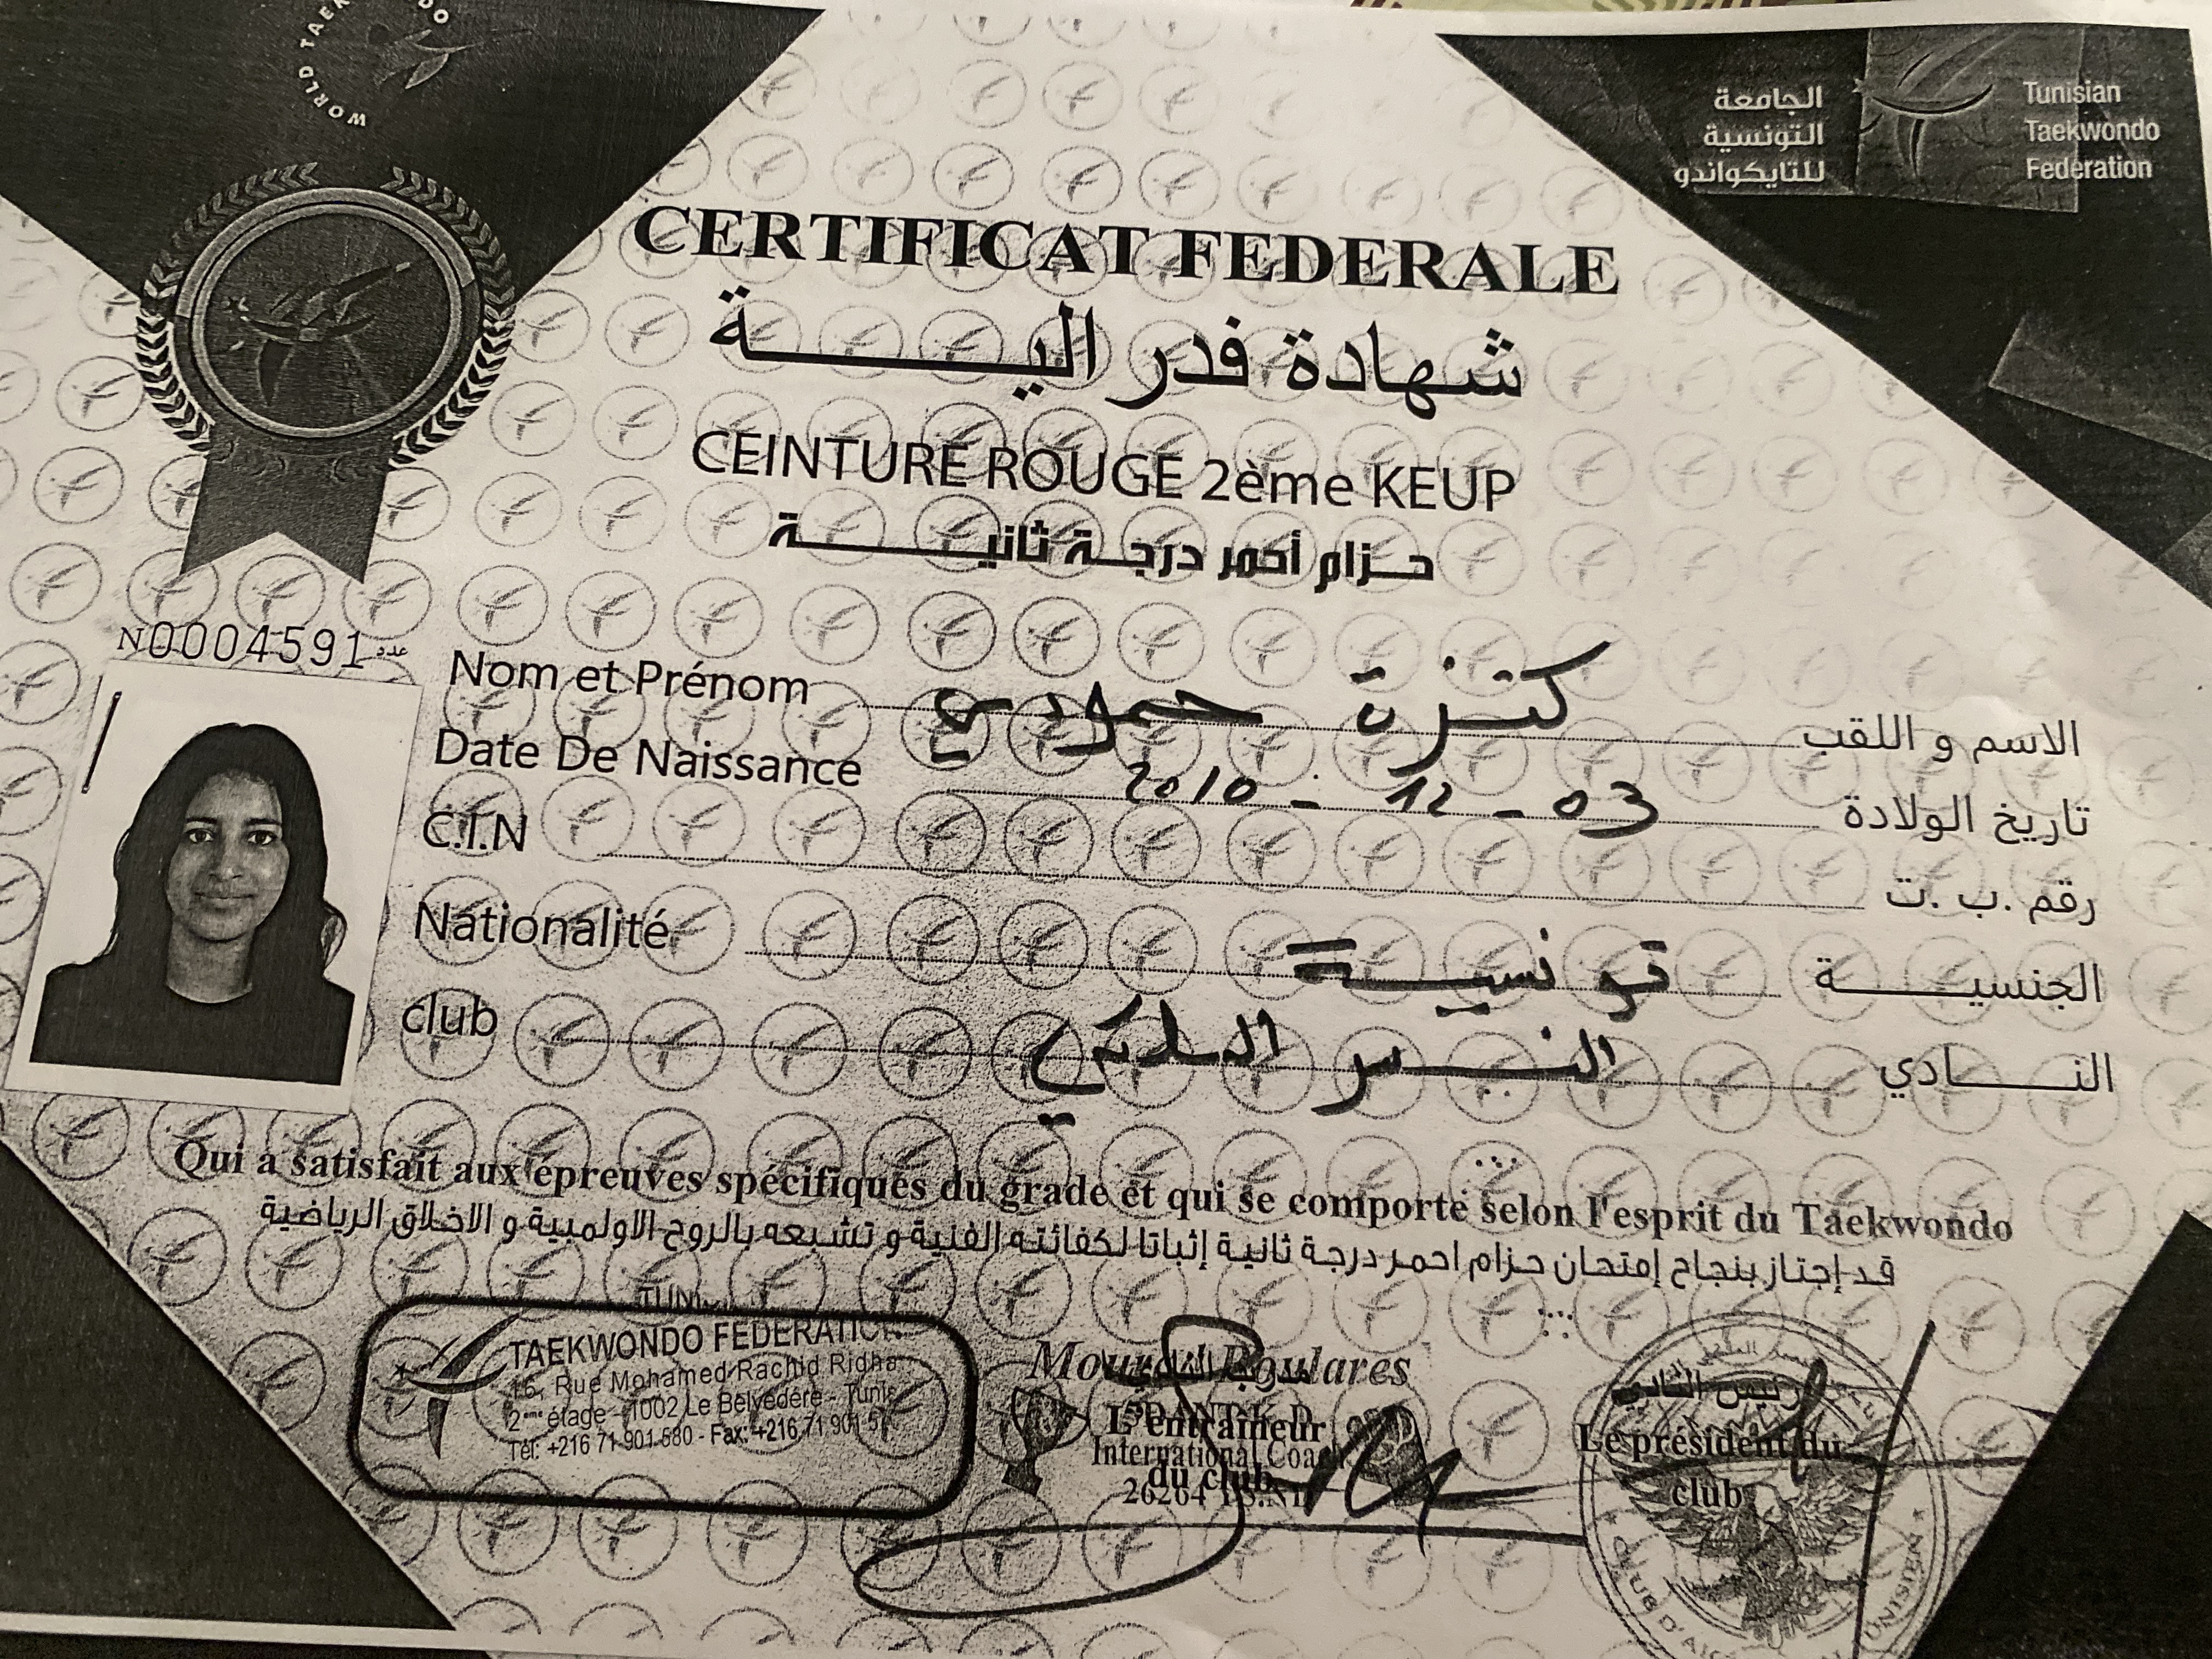 WORLD TAEKWONDO
الجامعة
التونسية
للتايكواندو
Tunisian
Taekwondo
Federation
CERTIFICAT FEDERALE
شهادة فدرالية
CEINTURE ROUGE 2ème KEUP
حزام أحمر درجة ثانية
N0004591 عدد
Nom et Prénom كنزة حمودي الاسم و اللقب
Date De Naissance 2010 - 12 - 03 تاريخ الولادة
C.I.N رقم .ب .ت
Nationalité تونسية الجنسية
club النسر الملكي النادي
Qui a satisfait aux épreuves spécifiques du grade et qui se comporte selon l'esprit du Taekwondo
قد إجتاز بنجاح إمتحان حزام احمر درجة ثانية إثباتا لكفائته الفنية و تشبعه بالروح الاولمبية و الاخلاق الرياضية
TAEKWONDO FEDERATION
16, Rue Mohamed Rachid Ridha
2ème étage - 1002 Le Belvédère - Tunis
Tél: +216 71 901 580 - Fax: +216 71 901
Mourad Boulares
L'entraineur
International Coach
du club
26264
رئيس النادي
Le président du
club
CLUB